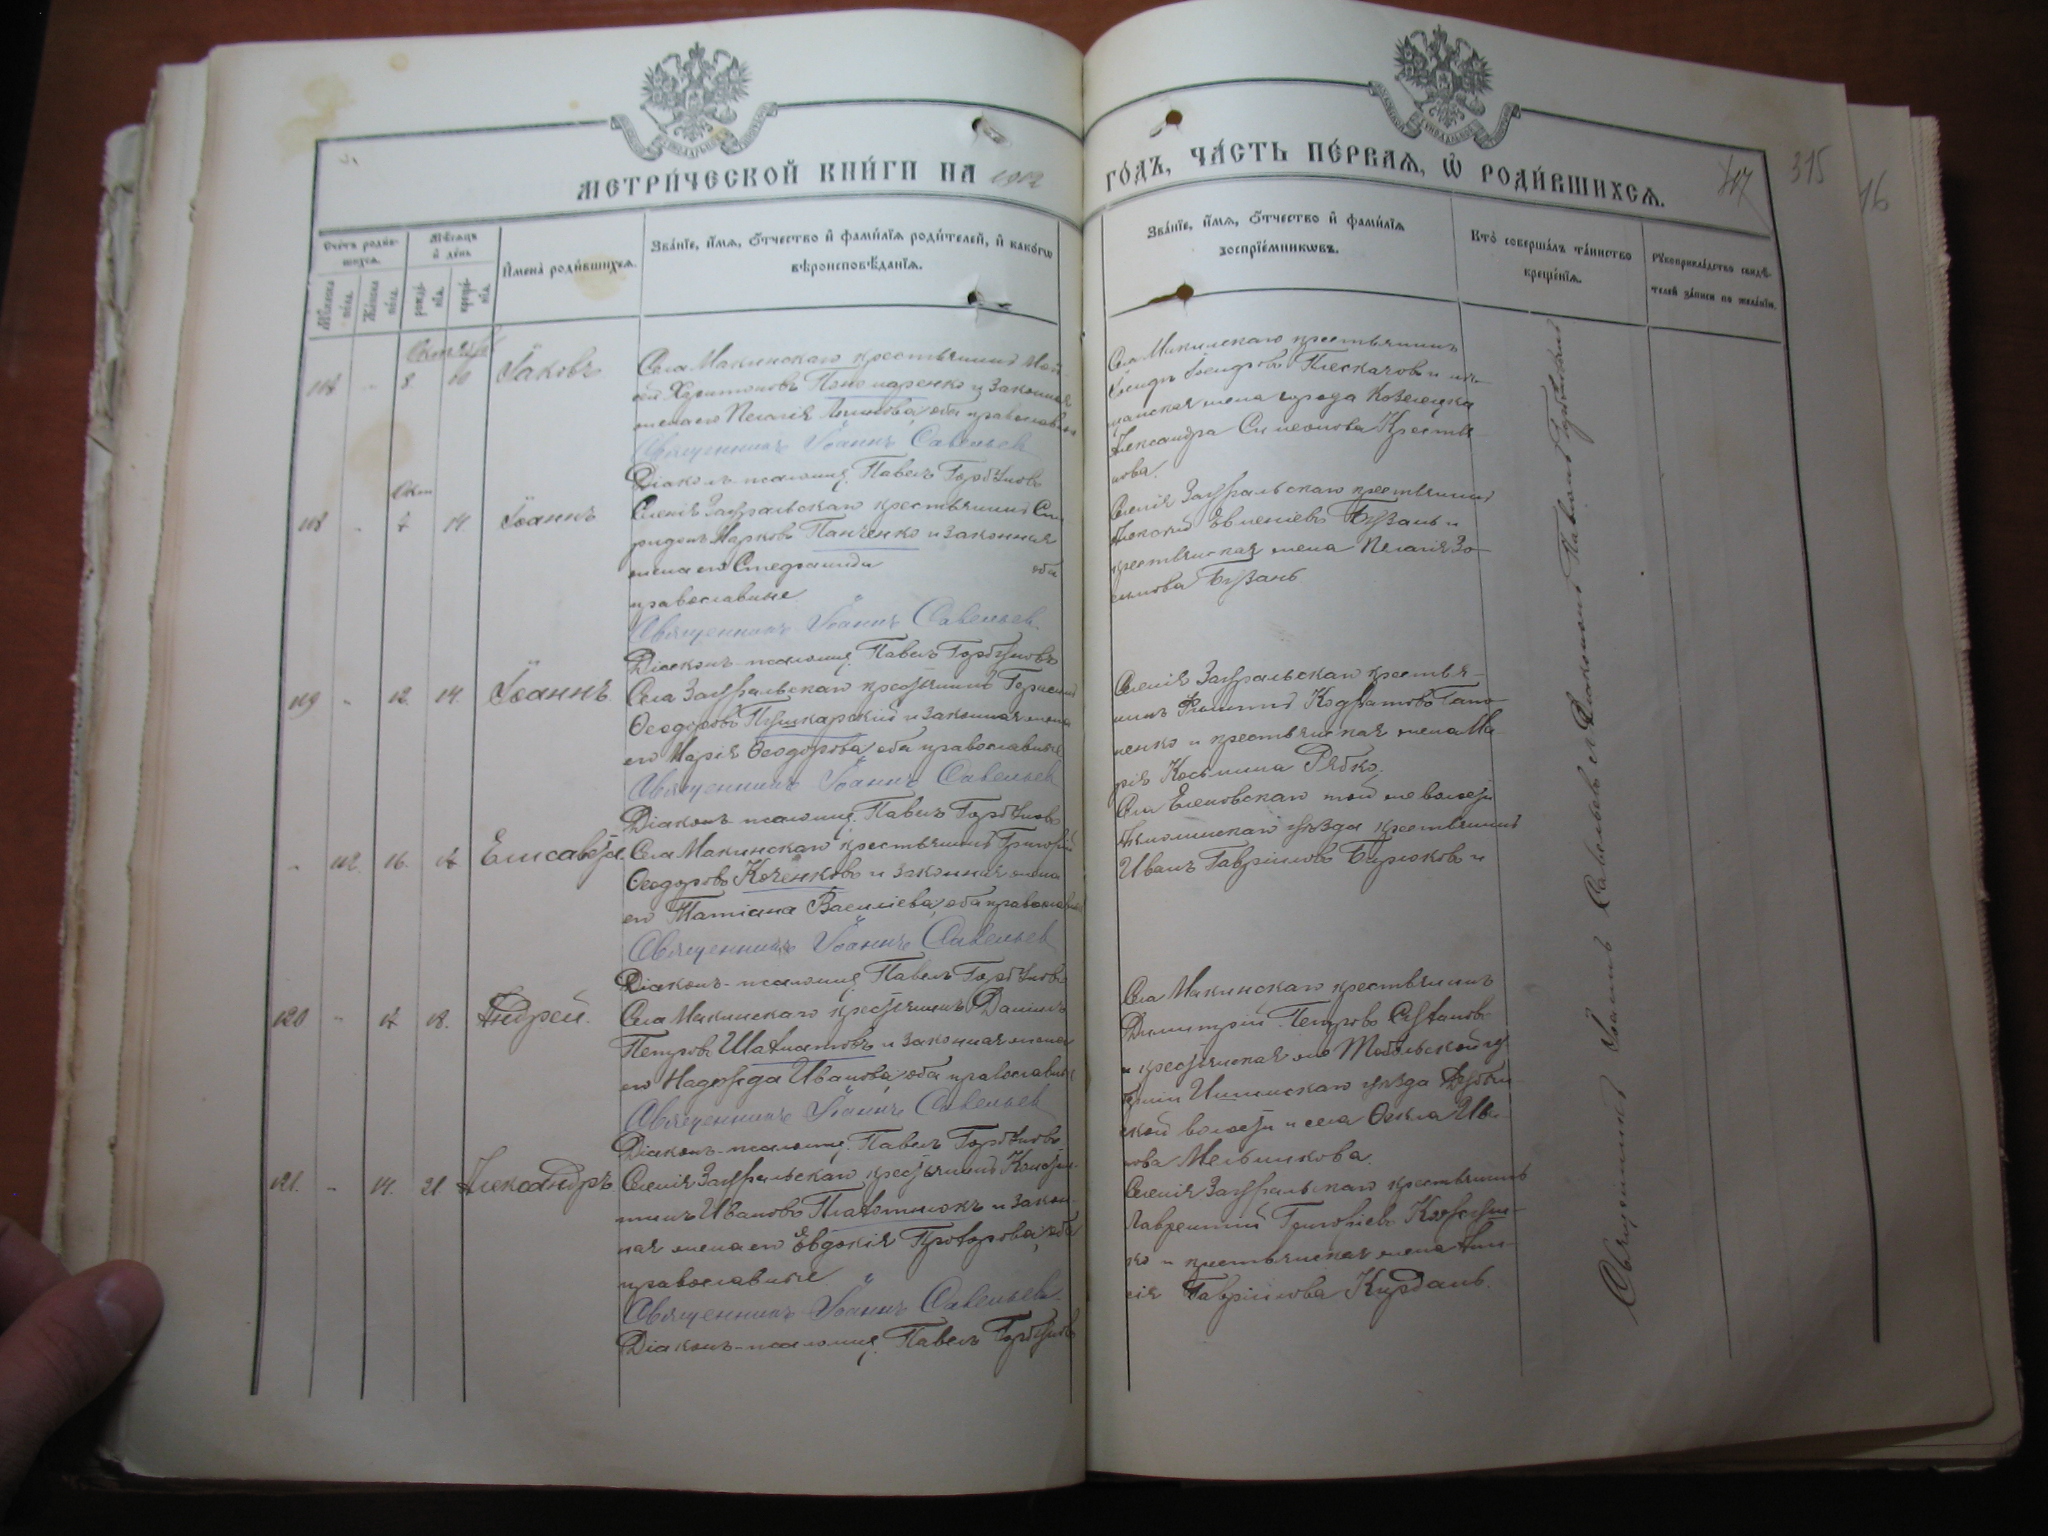 МЕТРИ́ЧЕСКОЙ КНИ́ГИ НА 1912
ГО́ДЪ, ЧА́СТЬ ПЕ́РВАѦ, Ѡ҆ РОДИ́ВШИХСѦ.
317
315
16
Сче́тъ роди́в-
шихсѧ.
Мѣ́сѧцъ
и҆ де́нь
Мꙋ́жеска
по́ла.
Же́нска
по́ла.
рожде́-
нїѧ.
креще́-
нїѧ.
И҆мена̀ роди́вшихсѧ.
Зва́нїе, и҆́мѧ, ѻ҆́тчество и҆ фами́лїѧ роди́телей, и҆ како́гѡ
вѣроисповѣ́данїѧ.
Зва́нїе, и҆́мѧ, ѻ҆́тчество и҆ фами́лїѧ
воспрїе́мникѡвъ.
Кто̀ соверша́лъ та́инство
креще́нїѧ.
Рꙋкоприкла́дство свидѣ́-
телей за́писи по жела́нїю.
Октябрь
8. 10 Іаковъ
Села Макинскаго крестьянинъ Мой-
сей Харитоновъ Пономаренко и законная
жена его Пелагія, оба православные
Священникъ Іоаннъ Савельев
Діаконъ-псаломщ. Павелъ Горбуновъ
Села Макинскаго крестьянинъ
Плескачов и мѣ-
щанская жена города Козелецка
Александра Симеонова Крестья-
нова.
Окт
118 " 7 14. Іоаннъ
Селенія Зауральскаго крестьянинъ Спи-
ридонъ Марковъ Панченко и законная
жена его Стефанида оба
православные
Священникъ Іоаннъ Савельев.
Діаконъ-псаломщ. Павелъ Горбуновъ
Селенія Зауральскаго крестьянинъ
Алексій Евгеніевъ Бузань и
крестьянская жена Пелагія Зо-
симова Бузань.
119 " 12. 14. Іоаннъ.
Села Зауральскаго крестьянинъ Герасимъ
Ѳеодоровъ Пушкарскій и законная жена
его Марія Ѳеодорова, оба православные
Священникъ Іоаннъ Савельев
Діаконъ-псаломщ. Павелъ Горбуновъ
Селенія Зауральскаго крестья-
нинъ Кодратовъ Гапо-
ненко и крестьянская жена Ма-
рія Косьмина Рябко.
" 112. 16. 17 Елисавета.
Села Макинскаго крестьянинъ Григорій
Ѳеодоровъ Коченковъ и законная жена
его Татіана Василіева, оба православные
Священникъ Іоаннъ Савельев
Діаконъ-псаломщ. Павелъ Горбуновъ
Села Еленовскаго той же волости
Акмолинскаго уѣзда крестьянинъ
Иванъ Гавріиловъ Бирюковъ и
120 " 17 18. Андрей.
Села Макинскаго крестьянинъ Даніилъ
Петровъ Шахматовъ и законная жена
его Надежда Иванова, оба православные
Священникъ Іоаннъ Савельев
Діаконъ-псаломщ. Павелъ Горбуновъ
Села Макинскаго крестьянинъ
Димитрій Петровъ
и крестьянская жена Тобольской гу-
берніи Ишимскаго уѣзда Дубын-
ской волости и села Ѳекла Ива-
нова Мельникова.
121. " 14. 21. Александръ.
Селенія Зауральскаго крестьянинъ Констан-
тинъ Ивановъ Плахотнюкъ и закон-
ная жена его Евдокія Прохорова, оба
православные
Священникъ Іоаннъ Савельев.
Діаконъ-псаломщ. Павелъ Горбуновъ
Селенія Зауральскаго крестьянинъ
Лаврентій Григоріевъ
ко и крестьянская жена Ана-
сія Гавріилова Курдань.
Священникъ Іоаннъ Савельев съ Діакономъ Павломъ Горбуновымъ